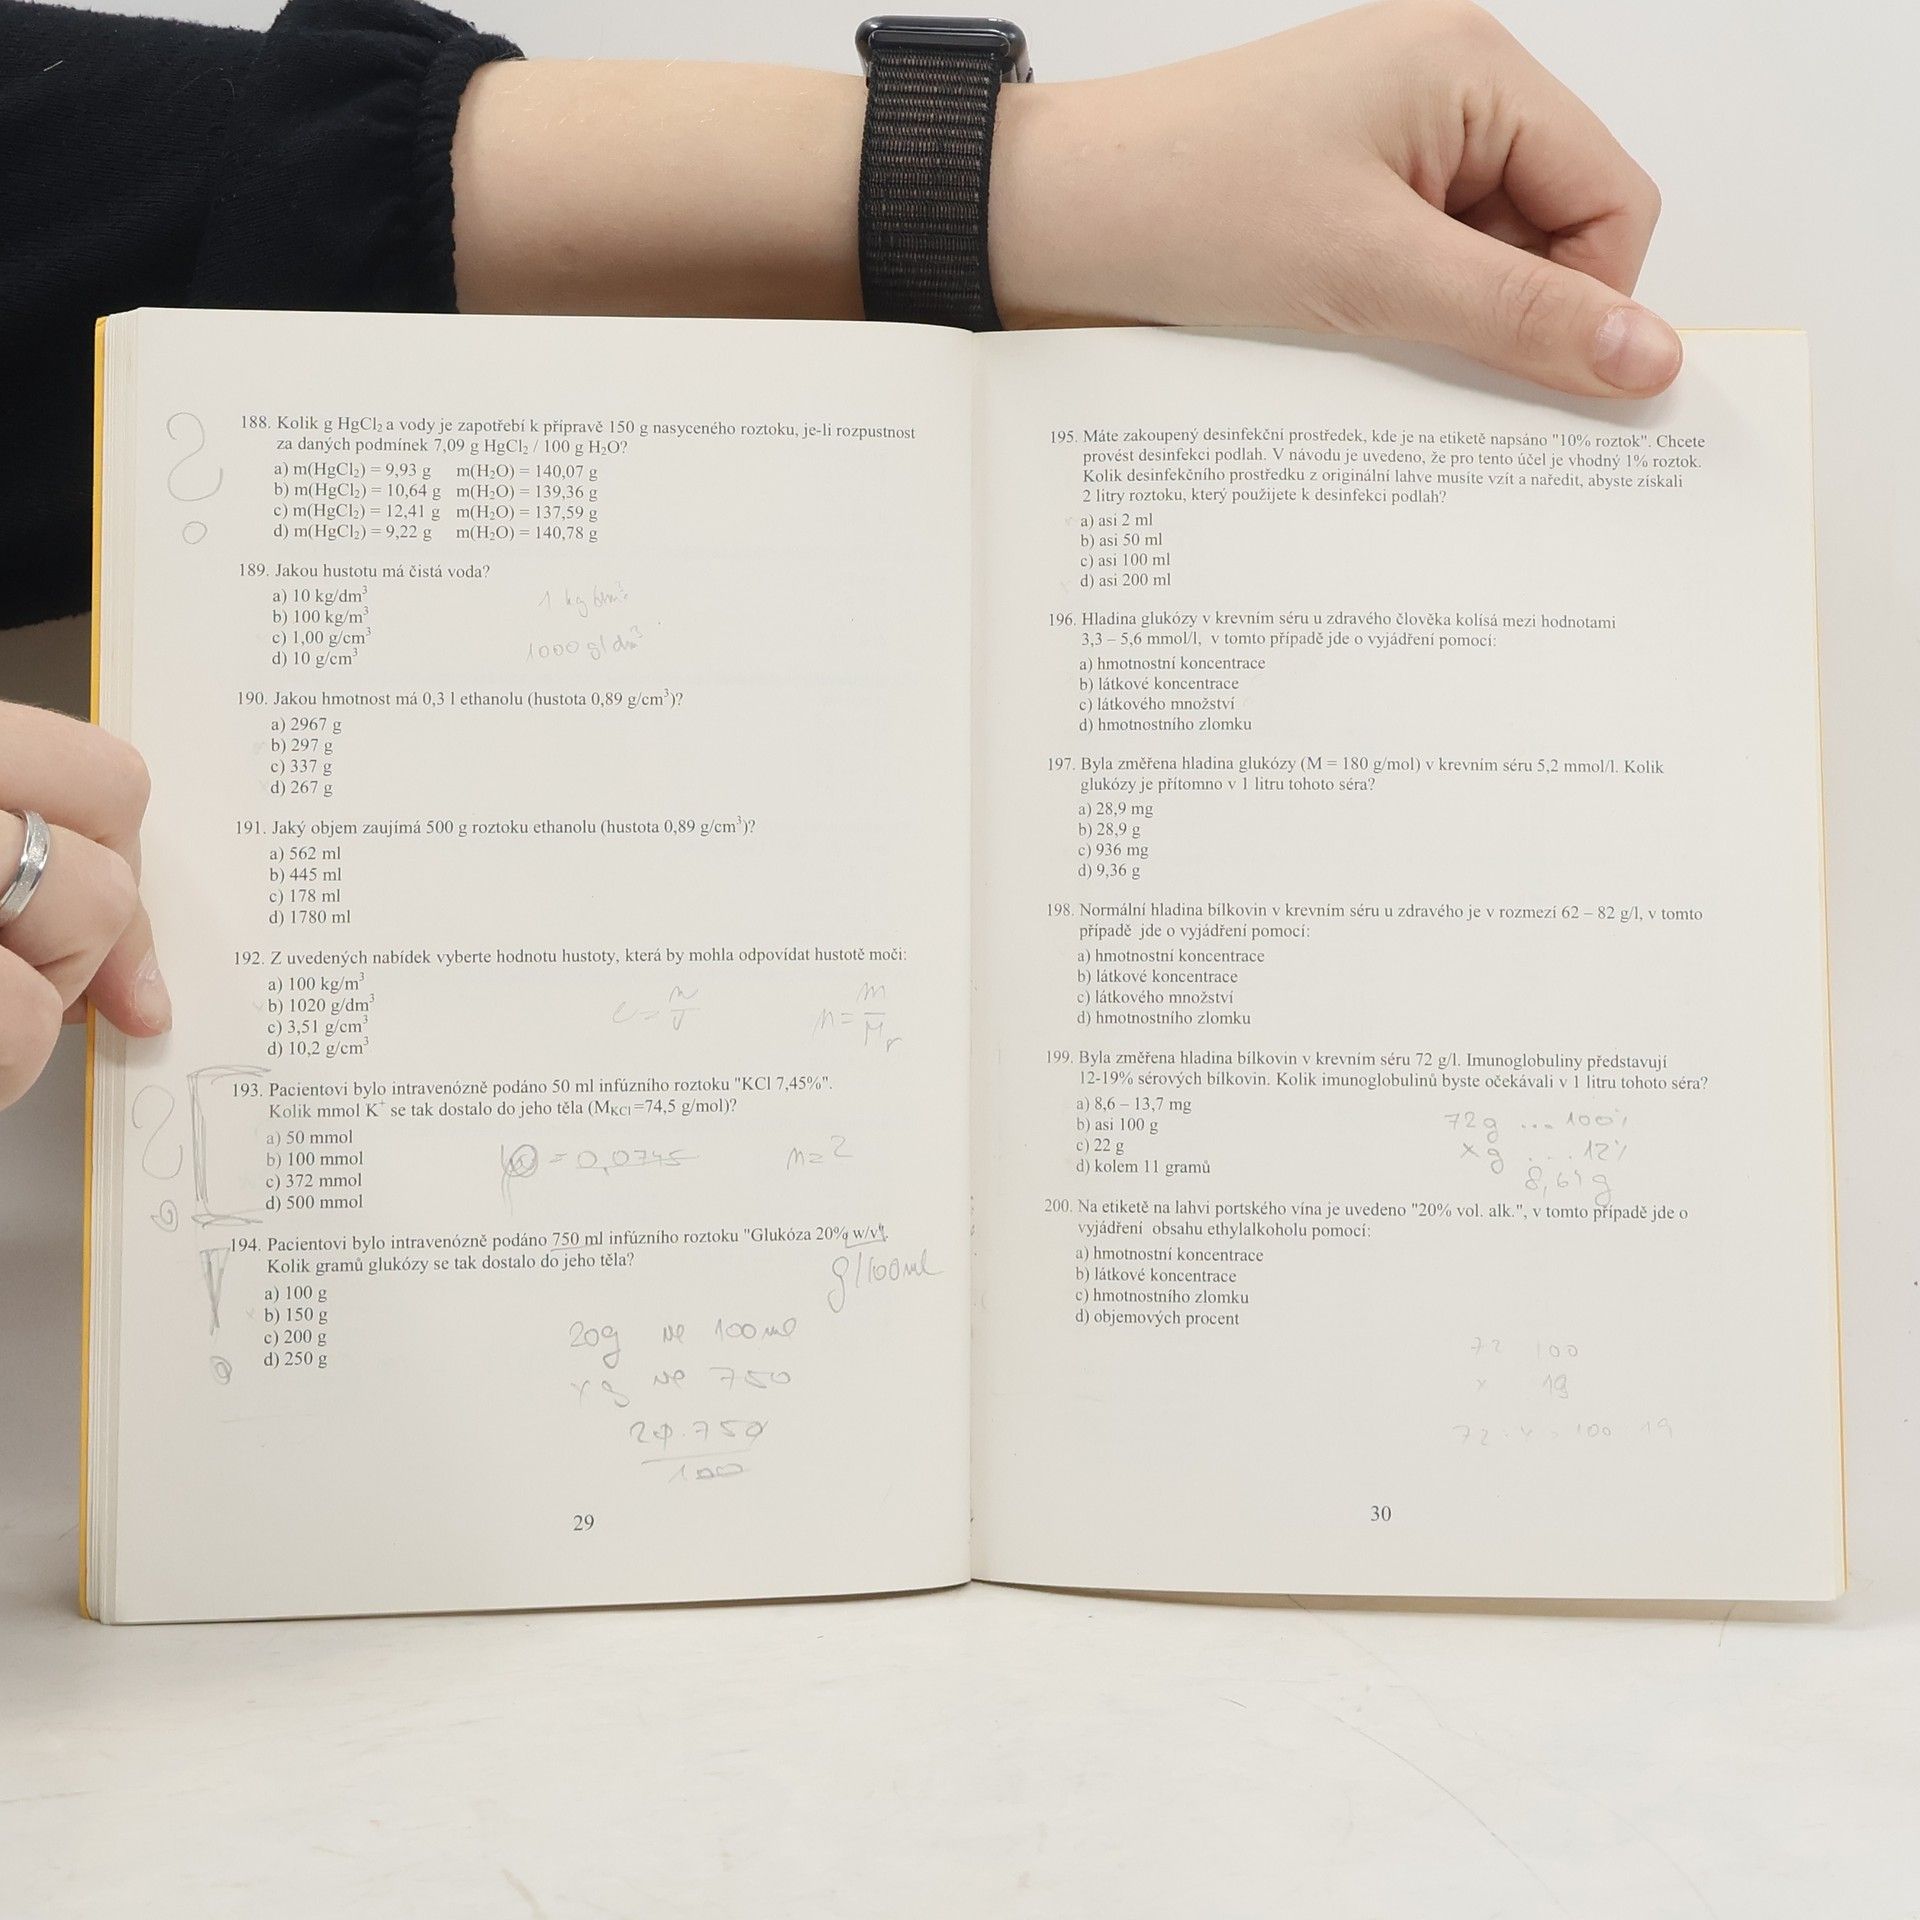 188. Kolik g HgCl₂ a vody je zapotřebí k přípravě 150 g nasyceného roztoku, je-li rozpustnost
za daných podmínek 7,09 g HgCl₂ / 100 g H₂O?
a) m(HgCl₂) = 9,93 g m(H₂O) = 140,07 g
b) m(HgCl₂) = 10,64 g m(H₂O) = 139,36 g
c) m(HgCl₂) = 12,41 g m(H₂O) = 137,59 g
d) m(HgCl₂) = 9,22 g m(H₂O) = 140,78 g
189. Jakou hustotu má čistá voda?
a) 10 kg/dm³
b) 100 kg/m³
c) 1,00 g/cm³
d) 10 g/cm³
1000 g/dm³
190. Jakou hmotnost má 0,3 l ethanolu (hustota 0,89 g/cm³)?
a) 2967 g
b) 297 g
c) 337 g
d) 267 g
191. Jaký objem zaujímá 500 g roztoku ethanolu (hustota 0,89 g/cm³)?
a) 562 ml
b) 445 ml
c) 178 ml
d) 1780 ml
192. Z uvedených nabídek vyberte hodnotu hustoty, která by mohla odpovídat hustotě moči:
a) 100 kg/m³
b) 1020 g/dm³
c) 3,51 g/cm³
d) 10,2 g/cm³
c = n/V n = m/Mr
193. Pacientovi bylo intravenózně podáno 50 ml infúzního roztoku "KCl 7,45%".
Kolik mmol K⁺ se tak dostalo do jeho těla (M_KCl=74,5 g/mol)?
a) 50 mmol
b) 100 mmol
c) 372 mmol
d) 500 mmol
= 0,0745 n=?
194. Pacientovi bylo intravenózně podáno 750 ml infúzního roztoku "Glukóza 20% w/v".
Kolik gramů glukózy se tak dostalo do jeho těla?
g/100ml
a) 100 g
b) 150 g
c) 200 g
d) 250 g
20g ve 100 ml
x g ve 750
20.750
100
29
195. Máte zakoupený desinfekční prostředek, kde je na etiketě napsáno "10% roztok". Chcete
provést desinfekci podlah. V návodu je uvedeno, že pro tento účel je vhodný 1% roztok.
Kolik desinfekčního prostředku z originální lahve musíte vzít a naředit, abyste získali
2 litry roztoku, který použijete k desinfekci podlah?
a) asi 2 ml
b) asi 50 ml
c) asi 100 ml
d) asi 200 ml
196. Hladina glukózy v krevním séru u zdravého člověka kolísá mezi hodnotami
3,3 – 5,6 mmol/l, v tomto případě jde o vyjádření pomocí:
a) hmotnostní koncentrace
b) látkové koncentrace
c) látkového množství
d) hmotnostního zlomku
197. Byla změřena hladina glukózy (M = 180 g/mol) v krevním séru 5,2 mmol/l. Kolik
glukózy je přítomno v 1 litru tohoto séra?
a) 28,9 mg
b) 28,9 g
c) 936 mg
d) 9,36 g
198. Normální hladina bílkovin v krevním séru u zdravého je v rozmezí 62 – 82 g/l, v tomto
případě jde o vyjádření pomocí:
a) hmotnostní koncentrace
b) látkové koncentrace
c) látkového množství
d) hmotnostního zlomku
199. Byla změřena hladina bílkovin v krevním séru 72 g/l. Imunoglobuliny představují
12-19% sérových bílkovin. Kolik imunoglobulinů byste očekávali v 1 litru tohoto séra?
a) 8,6 – 13,7 mg
b) asi 100 g
c) 22 g
d) kolem 11 gramů
72g ... 100%
x g ... 12%
8,64 g
200. Na etiketě na lahvi portského vína je uvedeno "20% vol. alk.", v tomto případě jde o
vyjádření obsahu ethylalkoholu pomocí:
a) hmotnostní koncentrace
b) látkové koncentrace
c) hmotnostního zlomku
d) objemových procent
72 100
x 19
30